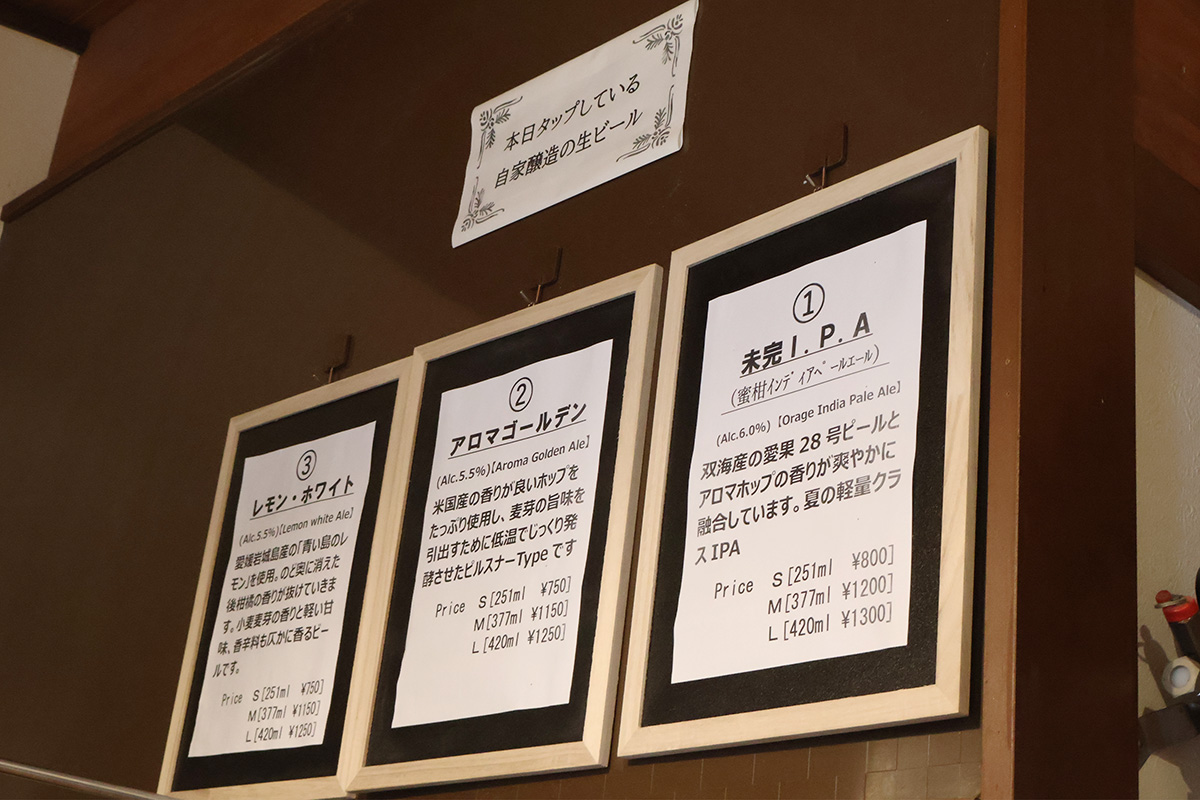 本日タップしている
自家醸造の生ビール
①
未完I.P.A
(蜜柑インディアペールエール)
(Alc.6.0%)【Orage India Pale Ale】
双海産の愛果28号ピールと
アロマホップの香りが爽やかに
融合しています。夏の軽量クラ
スIPA
Price S[251ml ¥800]
M[377ml ¥1200]
L[420ml ¥1300]
②
アロマゴールデン
(Alc.5.5%)【Aroma Golden Ale】
米国産の香りが良いホップを
たっぷり使用し、麦芽の旨味を
引出すために低温でじっくり発
酵させたピルスナーTypeです
Price S[251ml ¥750]
M[377ml ¥1150]
L[420ml ¥1250]
③
レモン・ホワイト
(Alc.5.5%)【Lemon white Ale】
愛媛岩城島産の「青い島のレ
モン」を使用。のど奥に消えた
後柑橘の香りが抜けていきま
す。小麦麦芽の香りと軽い甘
味、香辛料も仄かに香るビー
ルです。
Price S[251ml ¥750]
M[377ml ¥1150]
L[420ml ¥1250]